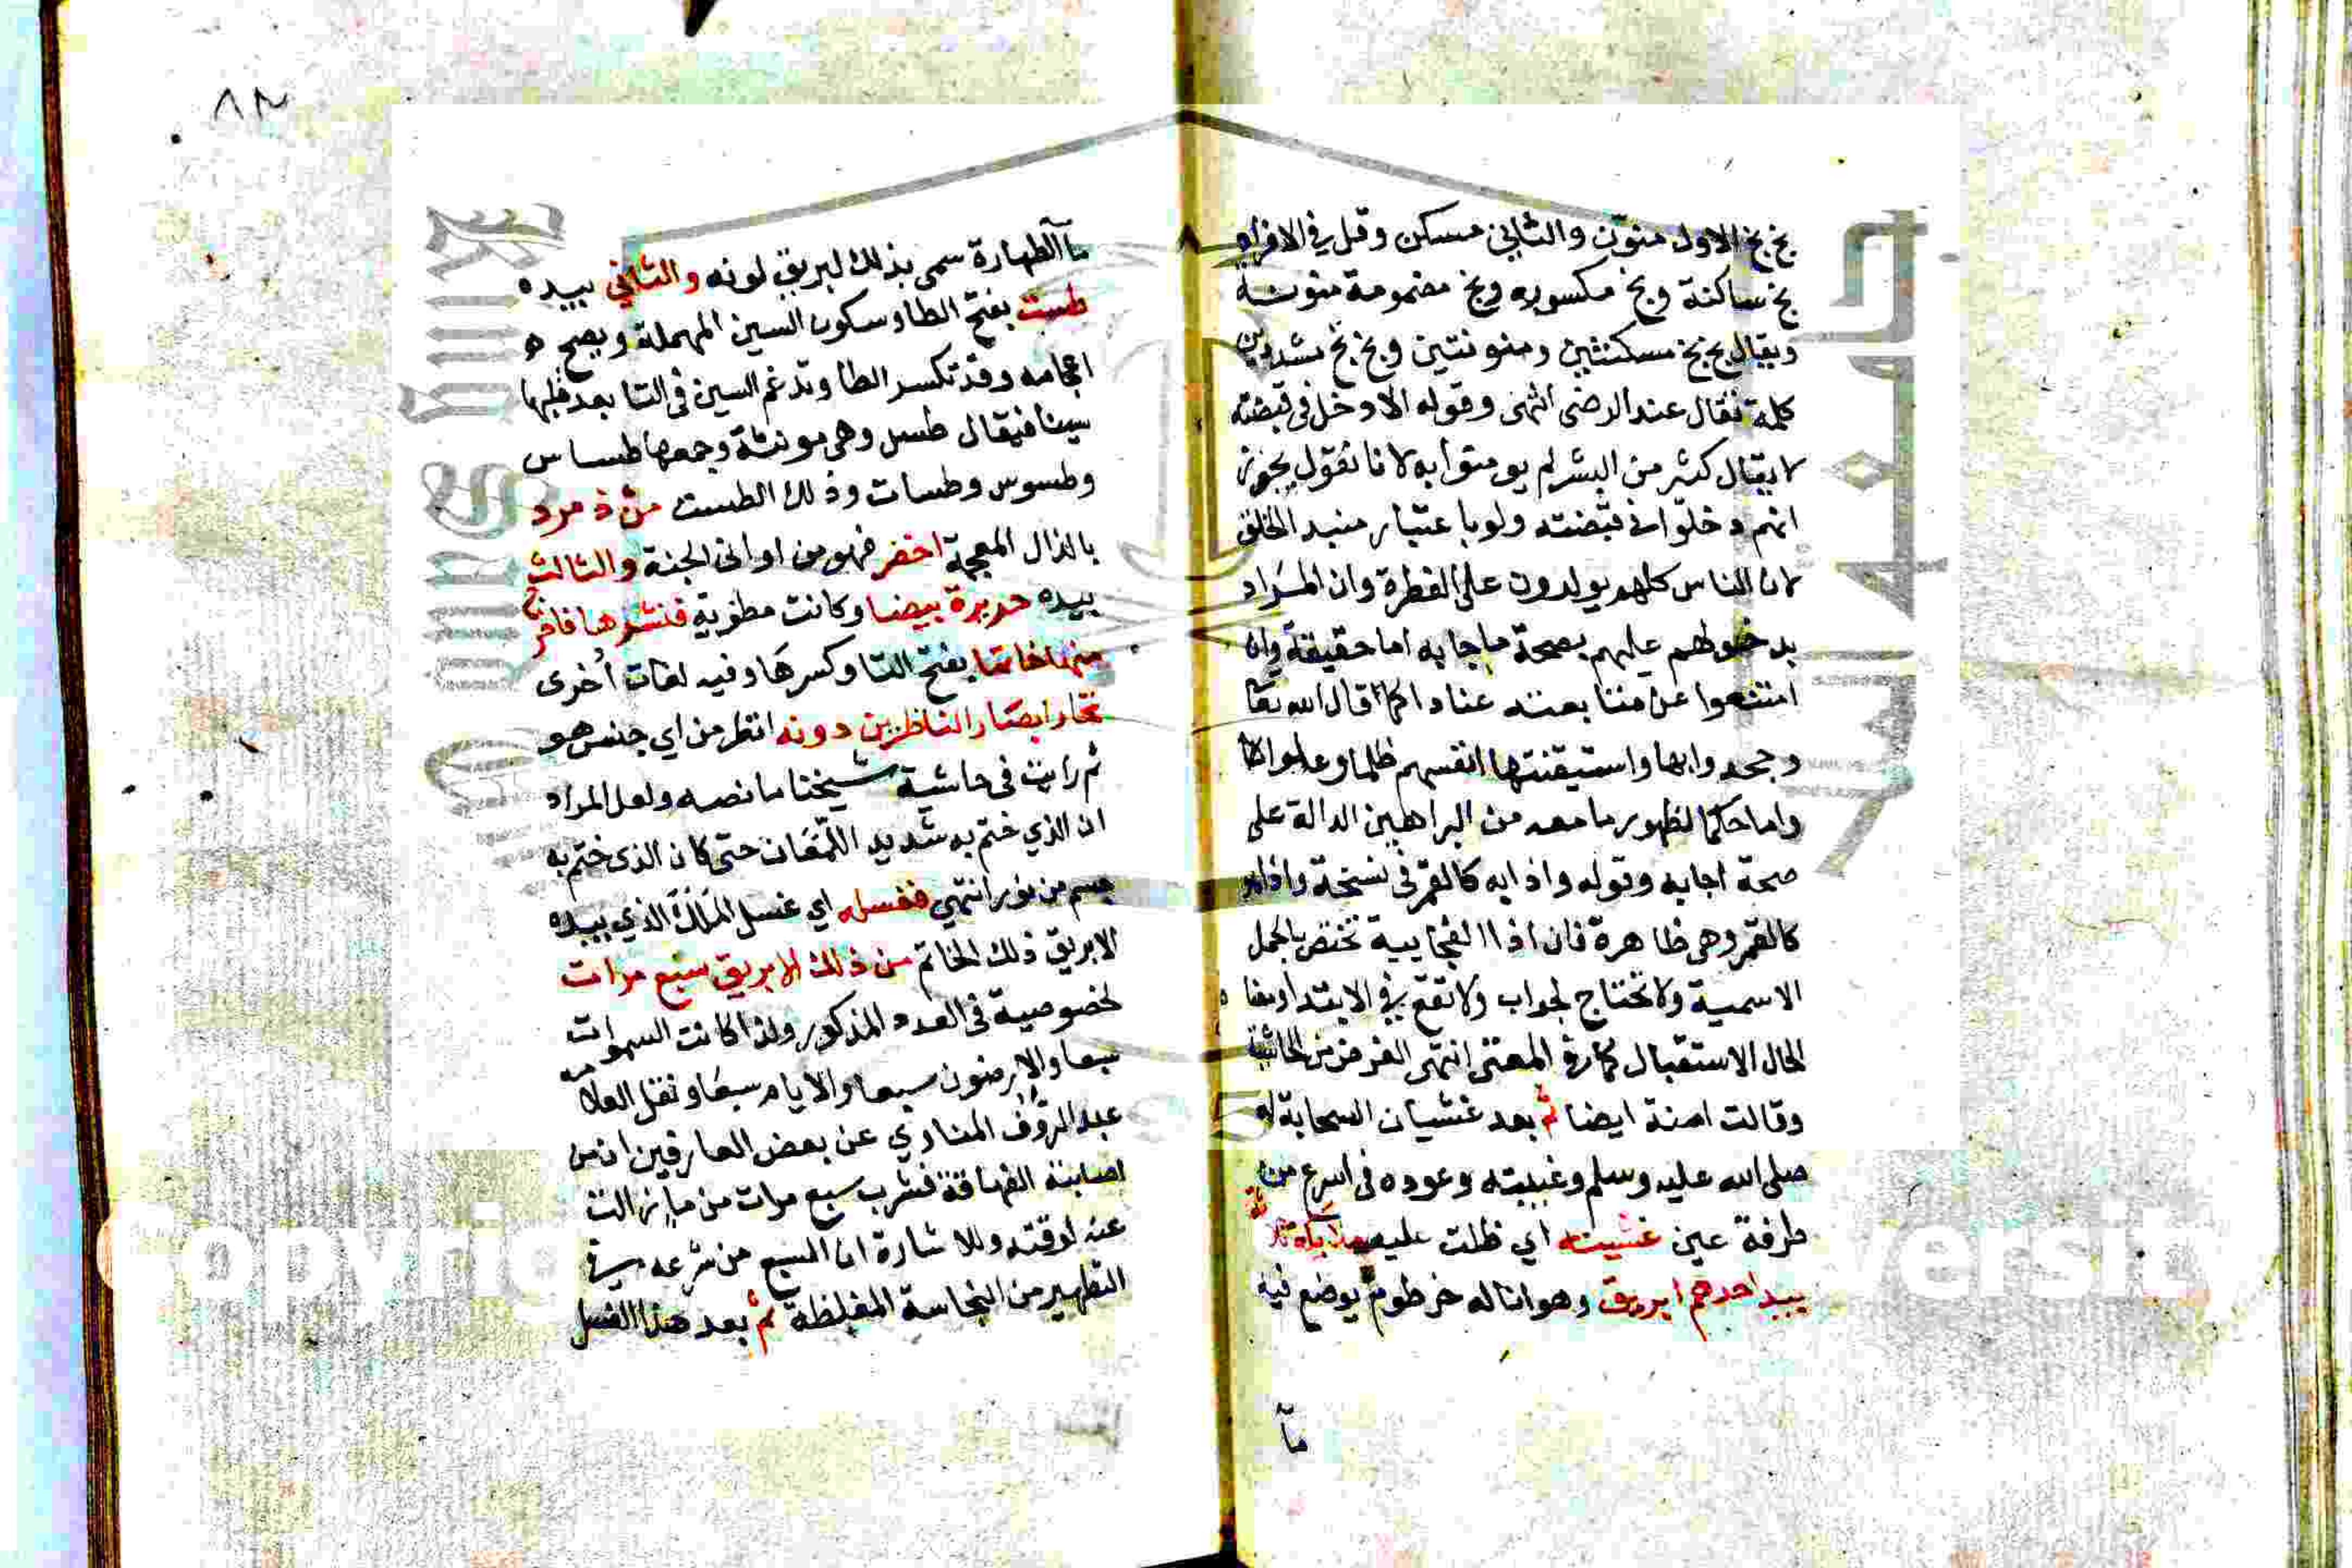 بخ بخ الاول منون والثاني مسكن وقل في الافراد
بخ ساكنة وبخ مكسوره وبخ مضمومة منونة
ويقال بخ بخ مسكنتين ومنونتين وبخ بخ مشددين
كلمة تقال عند الرضى انتهى وقوله الا دخل في قبضته
لا يقال كثير من البشر لم يومنوا به لانا نقول يجوز
انهم دخلوا في قبضته ولو باعتبار مبد الخلق
لان الناس كلهم يولدون على الفطرة وان المراد
بدخولهم عليهم بصحة ما جا به اما حقيقة وان
امتنعوا عن متابعته عنادا كما قال الله تعا
وجحدوا بها واستيقنتها انفسهم ظلما وعلوا
واما حكما لظهور ما معه من البراهين الدالة على
صحة اجابه وقوله واذا به كالقمر في نسخة واذا هو
كالقمر وهي ظاهرة فان اذا الفجاييه تختص بالجمل
الاسمية ولا تحتاج لجواب ولا تقع في الابتدا ومعنا
الحال الاستقبال كما في المغني انتهى الغرض من الحاشية
وقالت امنة ايضا ثم بعد غشيان السحابة له
صلى الله عليه وسلم وغيبته وعوده في اسرع من
طرفة عين غشيته اي ظلت عليه ثلاثة
بيد احدهم ابريق وهو انا له خرطوم يوضع فيه
مآ
٨٢
مآ الطهارة سمي بذلك لبريق لونه والثاني بيده
طست بفتح الطا وسكون السين المهملة ويصح
اعجامه وقد تكسر الطا وتدغم السين في التا بعد قلبها
سينا فيقال طس وهي مونثة وجمعها طساس
وطسوس وطسات وذلك الطست من ذمرد
بالذال المعجمة اخضر فهو من اواني الجنة والثالث
بيده حريرة بيضا وكانت مطوية فنشرها فاخرج
منها خاتما بفتح التا وكسرها وفيه لغات أخرى
تحار ابصار الناظرين دونه انظر من اي جنس هو
ثم رايت في حاشية شيخنا ما نصه ولعل المراد
ان الذي ختم به شديد اللمعان حتى كان الذي ختم به
جسم من نور انتهي فغسله اي غسل الملك الذي بيده
الابريق ذلك الخاتم من ذلك الابريق سبع مرات
لخصوصية في العدد المذكور ولذا كانت السموات
سبعا والارضون سبعا والايام سبعا ونقل العلامه
عبد الرؤف المناوي عن بعض العارفين ان من
اصابته الفهاقة فشرب سبع مرات من ما زالت
عنه لوقته وللاشارة ان السبع من شرعه في
التطهير من النجاسة المغلظة ثم بعد هذا الغسل